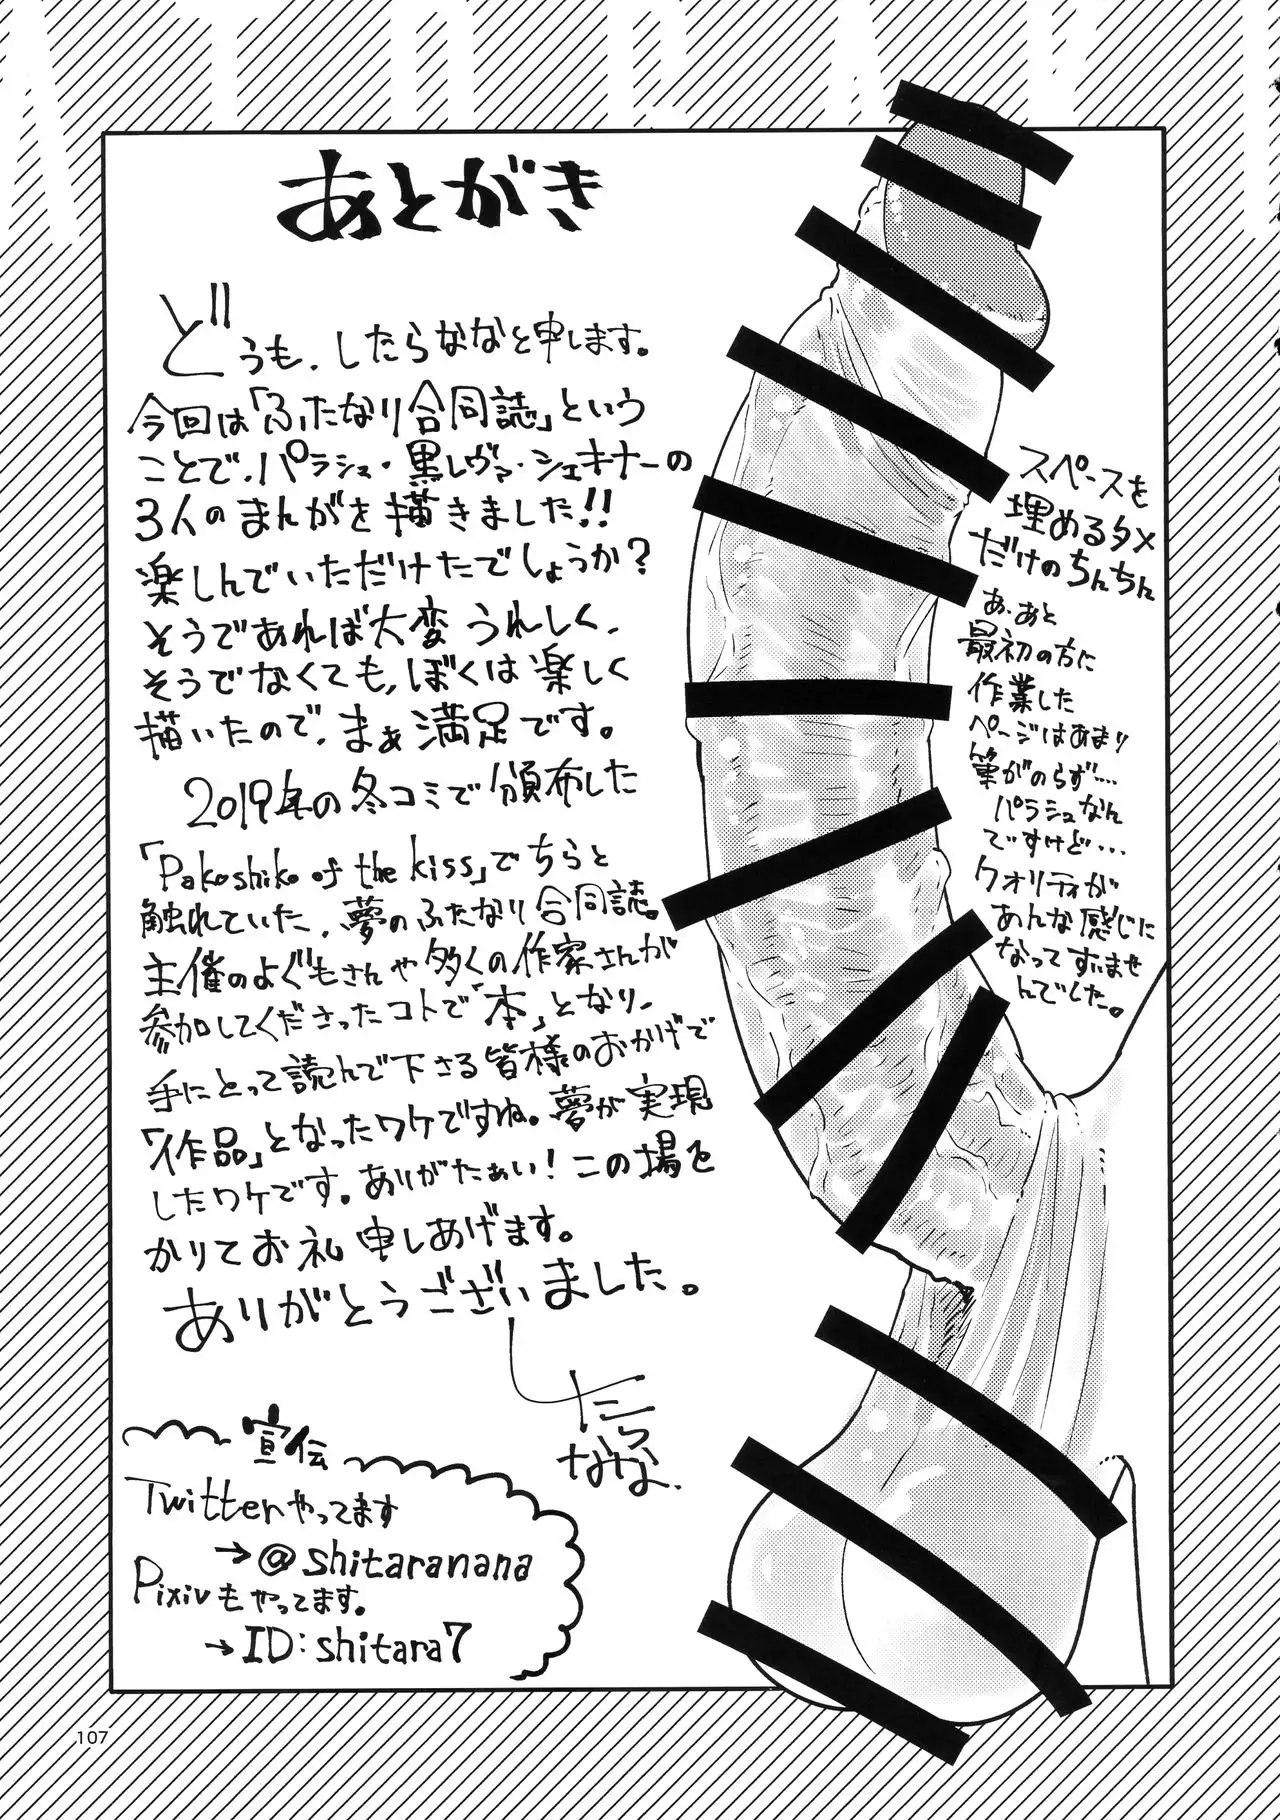 あとがき
どうも、したらななと申します。
今回は「ふたなり合同誌」という
ことで、パラシュ・黒レヴァ・シェキナーの
3人のまんがを描きました!!
楽しんでいただけたでしょうか?
そうであれば大変うれしく、
そうでなくても、ぼくは楽しく
描いたので、まぁ満足です。
2019年の冬コミで頒布した
「Pakoshiko of the kiss」でちらと
触れていた、夢のふたなり合同誌。
主催のよぐもさんや多くの作家さんが
参加してくださったコトで「本」となり、
手にとって読んで下さる皆様のおかげで
「作品」となったワケですね。夢が実現
したワケです。ありがたぁい!この場を
かりてお礼申しあげます。
ありがとうございました。
したらなな。
スペースを
埋めるタメ
だけのちんちん
あ、あと
最初の方に
作業した
ページはあまり
筆がのらず…
パラシュなん
ですけど…
クオリティが
あんな感じに
なってすいませ
んでした。
宣伝
Twitterやってます
→@shitaranana
Pixivもやってます。
→ID:shitara7
107